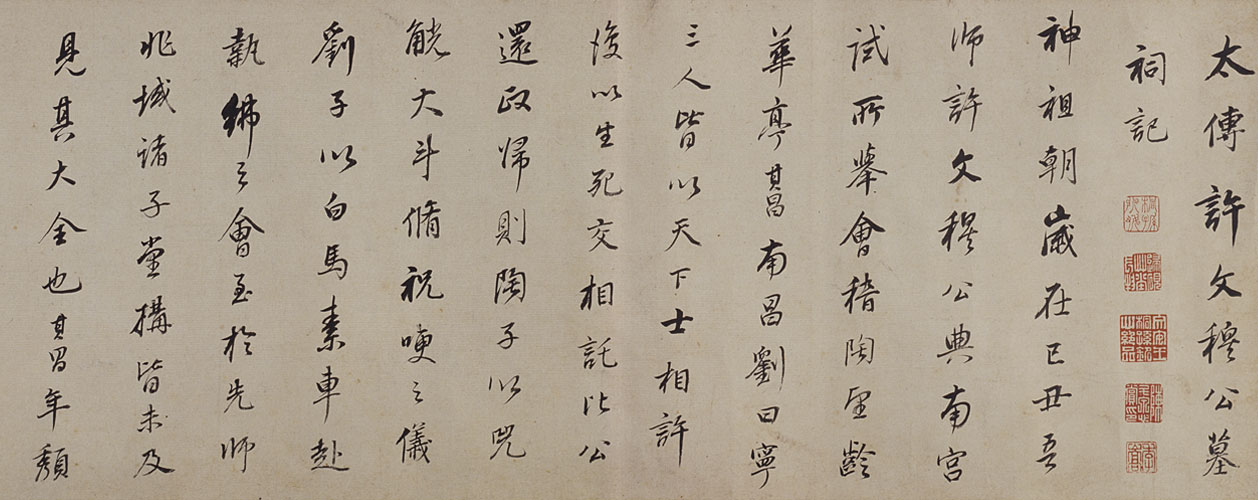 太傅許文穆公墓
祠記
神祖朝歲在己丑吾
師許文穆公典南宮
試所舉會稽陶望齡
華亭其昌南昌劉曰寧
三人皆以天下士相許
復以生死交相託比公
還政歸則陶子以兕
觥大斗脩祝哽之儀
劉子以白馬素車赴
執紼之會至於先師
兆域諸子堂構皆未及
見其大全也其昌年頹